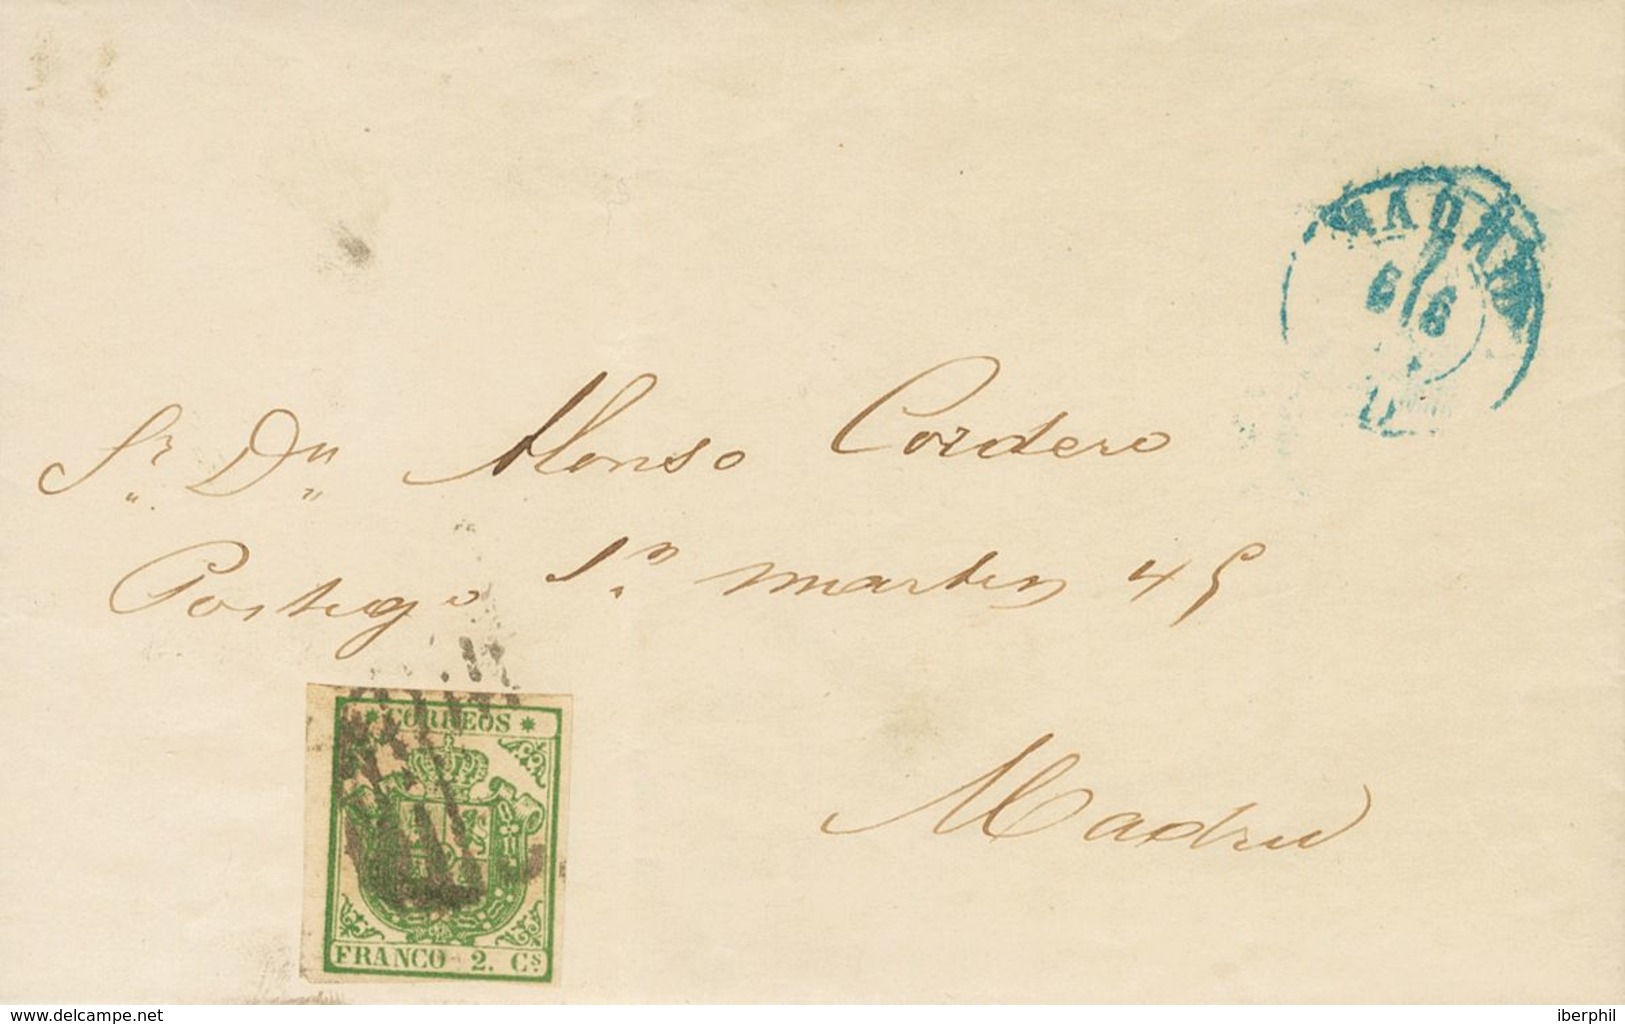 MADRID
6 6
Sr. Dn. Alonso Cordero
Postigo Sn. martin 45
Madrid
* CORREOS *
FRANCO 2. Cs.
www.delcampe.com
iberphil